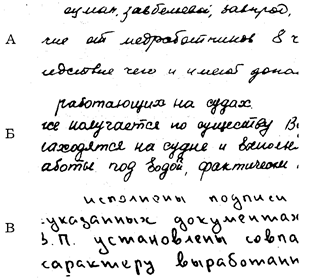 А
чие от медработников 8 ч
чего и имеют дона
Б
работающих на судах.
же получается по существу
находятся на судне и
аботы под водой, фактически
В
исполнены подписи
указанных документах
З.П. установлены совпа
характеру выработанн